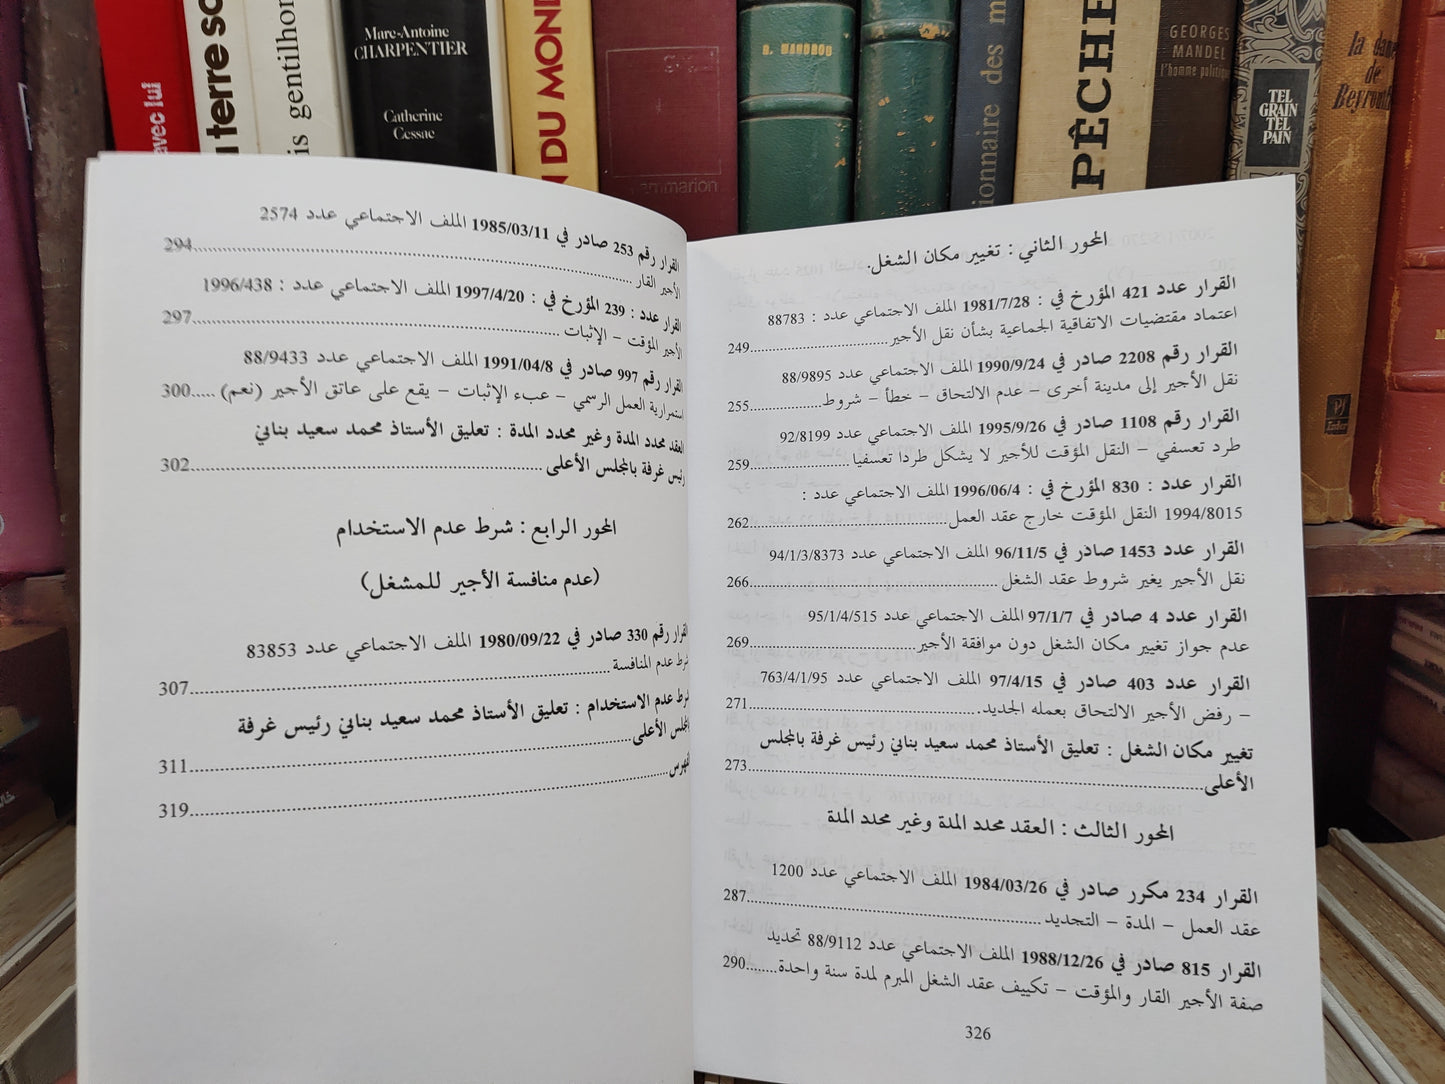 المحور الثاني : تغيير مكان الشغل.
القرار عدد 421 المؤرخ في : 1981/7/28 الملف الاجتماعي عدد : 88783
اعتماد مقتضيات الاتفاقية الجماعية بشأن نقل الأجير................................249
القرار رقم 2208 صادر في 1990/9/24 الملف الاجتماعي عدد 88/9895
نقل الأجير إلى مدينة أخرى – عدم الالتحاق – خطأ – شروط................255
القرار رقم 1108 صادر في 1995/9/26 الملف الاجتماعي عدد 92/8199
طرد تعسفي – النقل المؤقت للأجير لا يشكل طردا تعسفيا......................259
القرار عدد : 830 المؤرخ في : 1996/06/4 الملف الاجتماعي عدد :
1994/8015 النقل المؤقت خارج عقد العمل............................................262
القرار عدد 1453 صادر في 96/11/5 الملف الاجتماعي عدد 94/1/3/8373
نقل الأجير يغير شروط عقد الشغل ......................................................266
القرار عدد 4 صادر في 97/1/7 الملف الاجتماعي عدد 95/1/4/515
عدم جواز تغيير مكان الشغل دون موافقة الأجير....................................269
القرار عدد 403 صادر في 97/4/15 الملف الاجتماعي عدد 763/4/1/95
– رفض الأجير الالتحاق بعمله الجديد..................................................271
تغيير مكان الشغل : تعليق الأستاذ محمد سعيد بناني رئيس غرفة بالمجلس
الأعلى...............................................................................................273
المحور الثالث : العقد محدد المدة وغير محدد المدة
القرار 234 مكرر صادر في 1984/03/26 الملف الاجتماعي عدد 1200
عقد العمل – المدة – التجديد..............................................................287
القرار 815 صادر في 1988/12/26 الملف الاجتماعي عدد 88/9112 تحديد
صفة الأجير القار والمؤقت – تكييف عقد الشغل المبرم لمدة سنة واحدة........290
326
القرار رقم 253 صادر في 1985/03/11 الملف الاجتماعي عدد 2574
الأجير القار ........................................................................................294
القرار عدد : 239 المؤرخ في : 1997/4/20 الملف الاجتماعي عدد : 1996/438
الأجير المؤقت – الإثبات .....................................................................297
القرار رقم 997 صادر في 1991/04/8 الملف الاجتماعي عدد 88/9433
استمرارية العمل الرسمي – عبء الإثبات – يقع على عاتق الأجير (نعم) .....300
العقد محدد المدة وغير محدد المدة : تعليق الأستاذ محمد سعيد بناني
رئيس غرفة بالمجلس الأعلى ................................................................302
المحور الرابع : شرط عدم الاستخدام
(عدم منافسة الأجير للمشغل)
القرار رقم 330 صادر في 1980/09/22 الملف الاجتماعي عدد 83853
شرط عدم المنافسة..............................................................................307
شرط عدم الاستخدام : تعليق الأستاذ محمد سعيد بناني رئيس غرفة
بالمجلس الأعلى...................................................................................311
الفهرس..............................................................................................319
avec lui
terre
gentilhom
Marc-Antoine
CHARPENTIER
Catherine
Cessac
DU MOND
R. MANDROU
PÊCHE
GEORGES
MANDEL
l'homme politique
TEL
GRAIN
TEL
PAIN
la dame
de
Beyrouth